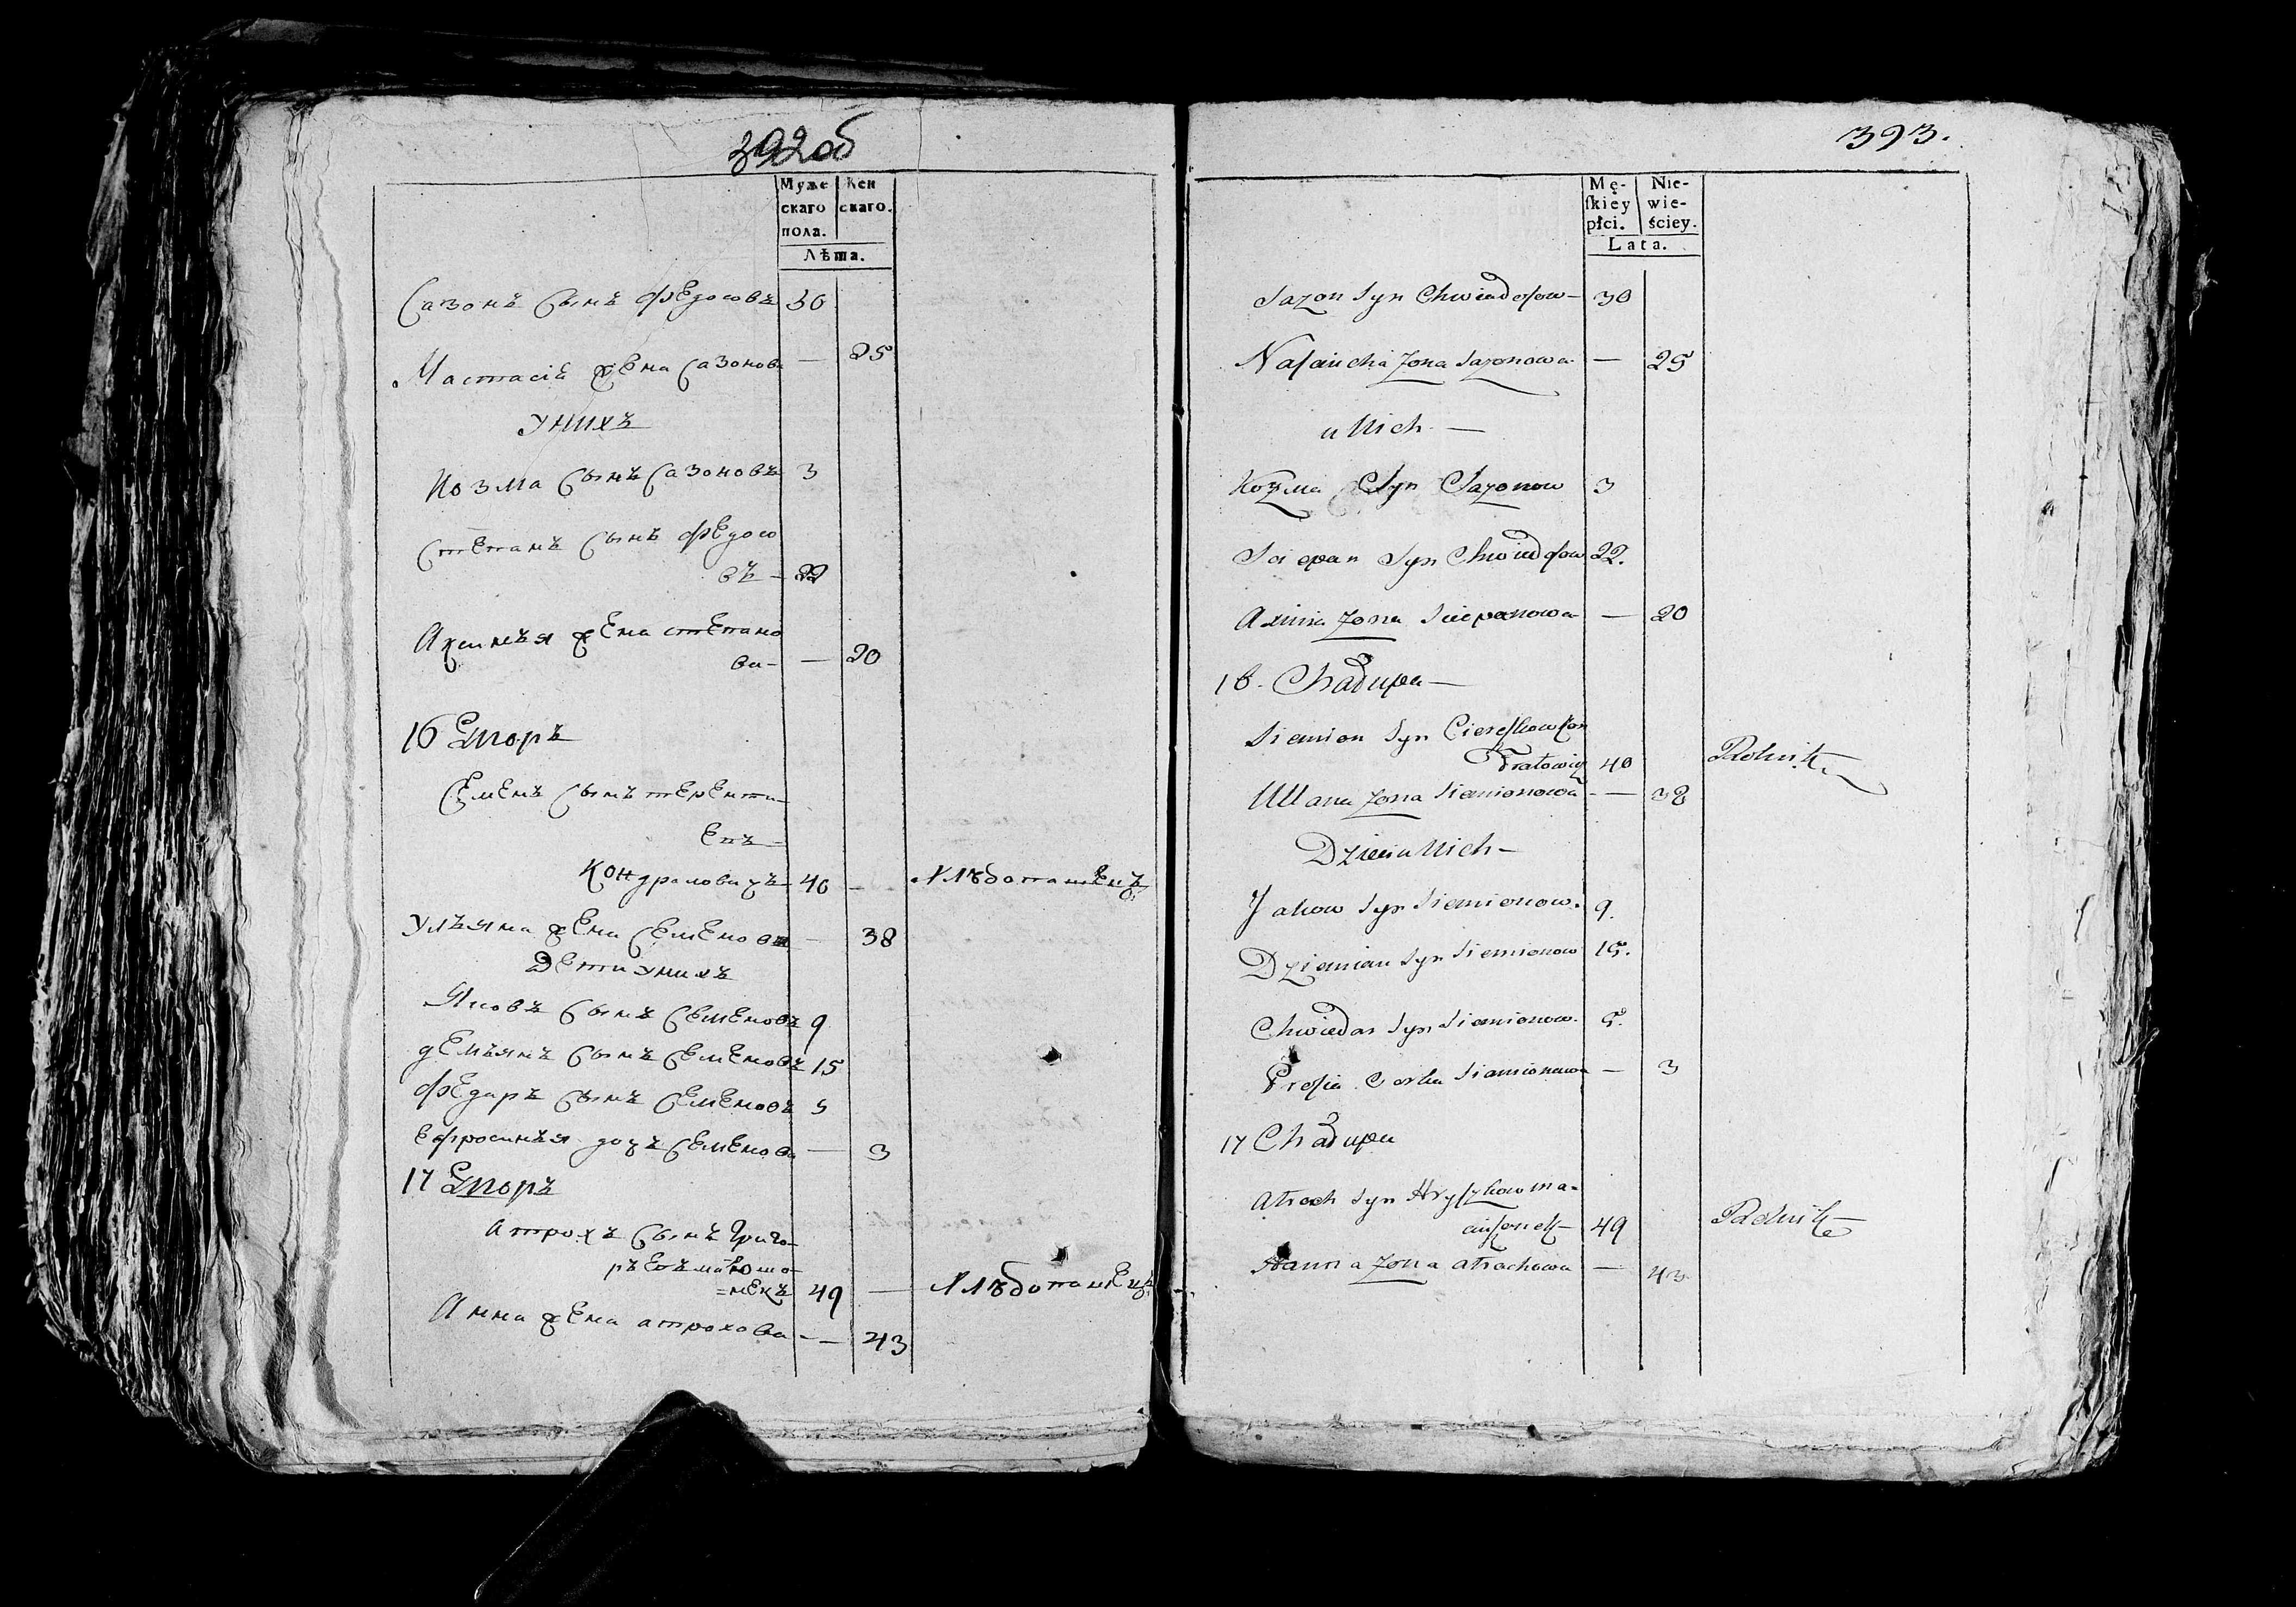 392об
Муже
скаго
пола.
Жен
скаго.
Лѣта.
Сазонъ сынъ Федосовъ 30
Настасія жена Сазонова — 25
У нихъ
Козма сынъ Сазоновъ 3
Степанъ сынъ Федосо
въ — 22
Аксинья жена Степано
ва — — 20
16 Дворъ
Семенъ сынъ Теренти—
евъ —
Кондратовичъ — 40 — Хлѣбопашецъ
Ульяна жена Семенова — 38
Дети у нихъ
Яковъ сынъ Семеновъ 9
Демьянъ сынъ Семеновъ 15
Федаръ сынъ Семеновъ 5
Ефросинья дочь Семенова — 3
17 Дворъ
Атрохъ сынъ Григо—
рьевъ
=некъ 49 — Хлѣбопашецъ
Анна жена Атрохова — — 43
393.
Mę-
ſkiey
płci.
Nie-
wie-
ściey.
Lata.
Sazon Syn Chwiedosow — 30
Nastaucha Zona Sazonowa — 25
u Nich —
Kozma Syn Sazonow 3
Sciepan Syn Chwiedosow 22.
Axinia Zona Sciepanowa — 20
16. Chałupa —
Siemion Syn Ciereszkow Kon
dratowicz 40 Rolnik
Ullana Zona Siemionowa — 38
Dzieci u Nich —
Jakow Syn Siemionow. 9.
Dziemian Syn Siemionow 15.
Chwiedar Syn Siemionow. 5.
Prosia Corka Siemionowa — 3
17 Chałupa
Atroch Syn Hryszkow Ma-
ciusonek 49 Rolnik
Hanna Zona Atrochowa — 43